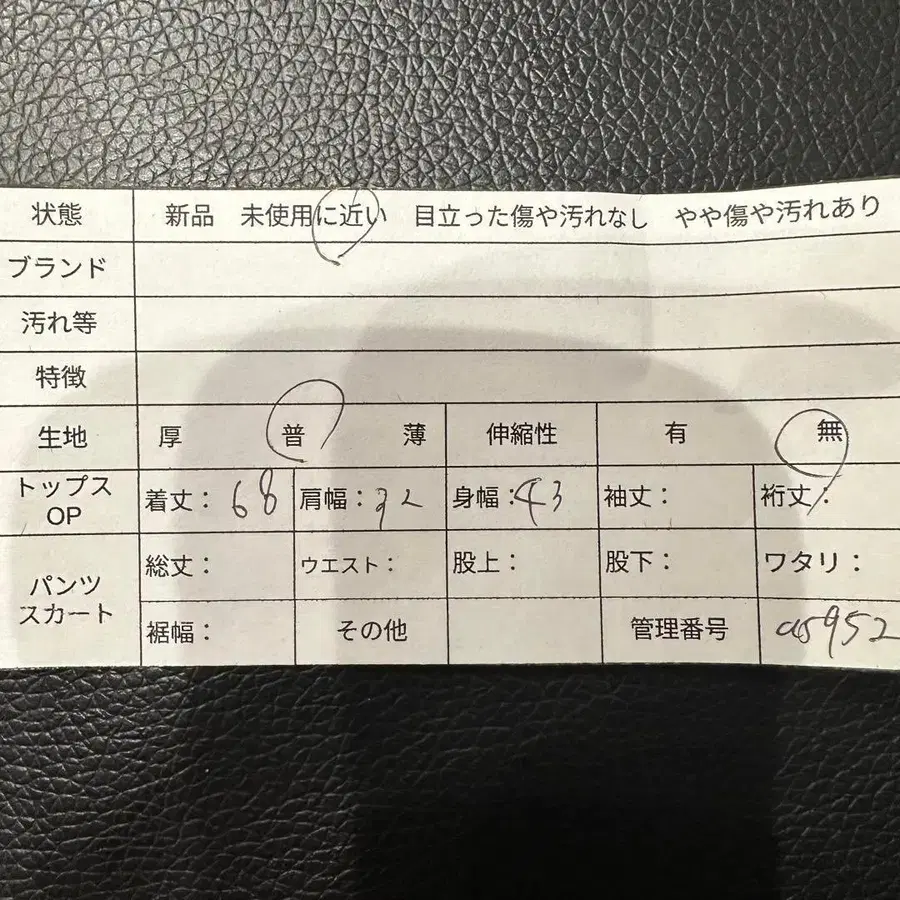 状態 新品 未使用に近い 目立った傷や汚れなし やや傷や汚れあり
ブランド
汚れ等
特徴
生地 厚 普 薄 伸縮性 有 無
トップス
OP
着丈: 68 肩幅: 32 身幅: 43 袖丈: 裄丈:
パンツ
スカート
総丈: ウエスト: 股上: 股下: ワタリ:
裾幅: その他 管理番号 a5952